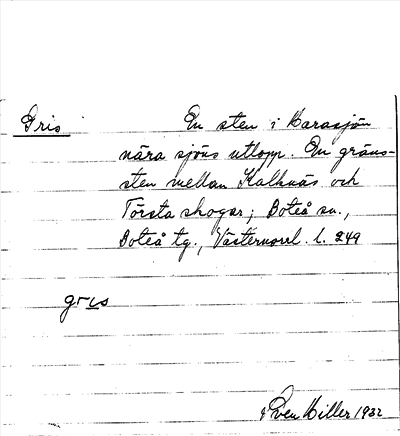 Gris
En sten i Harasjön
nära sjöns utlopp. En gräns-
sten mellan Kalknäs och
Törsta skogar; Boteå sn.,
Boteå tg., Västernorrl. l. 249
gris
Sven Hiller 1932